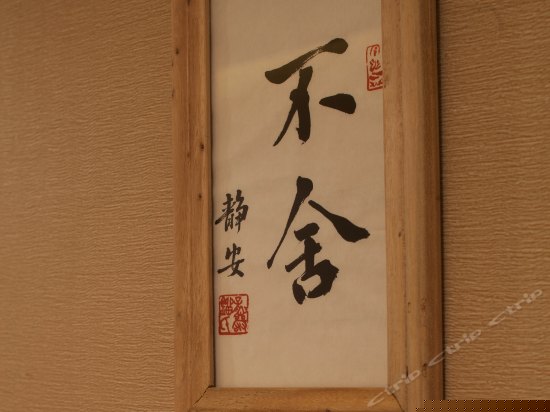 不舍
静安
ctrip·ctrip·ctrip